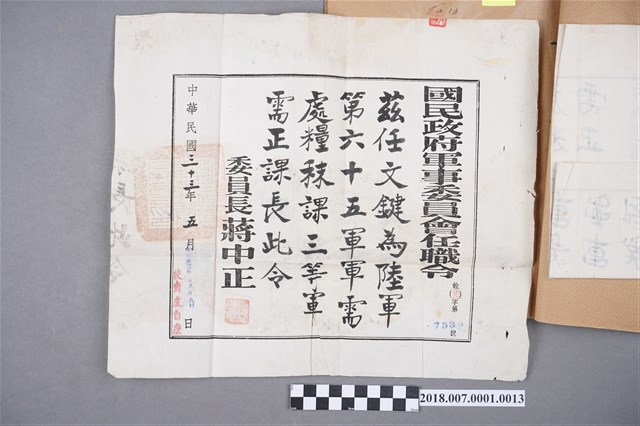 國民政府軍事委員會任職令
字第
753
號
茲任文鍵為陸軍
第六十五軍軍需
處糧秣課三等軍
需正課長此令
委員長蔣中正
中華民國三十三年五月
日
2018.007.0001.0013